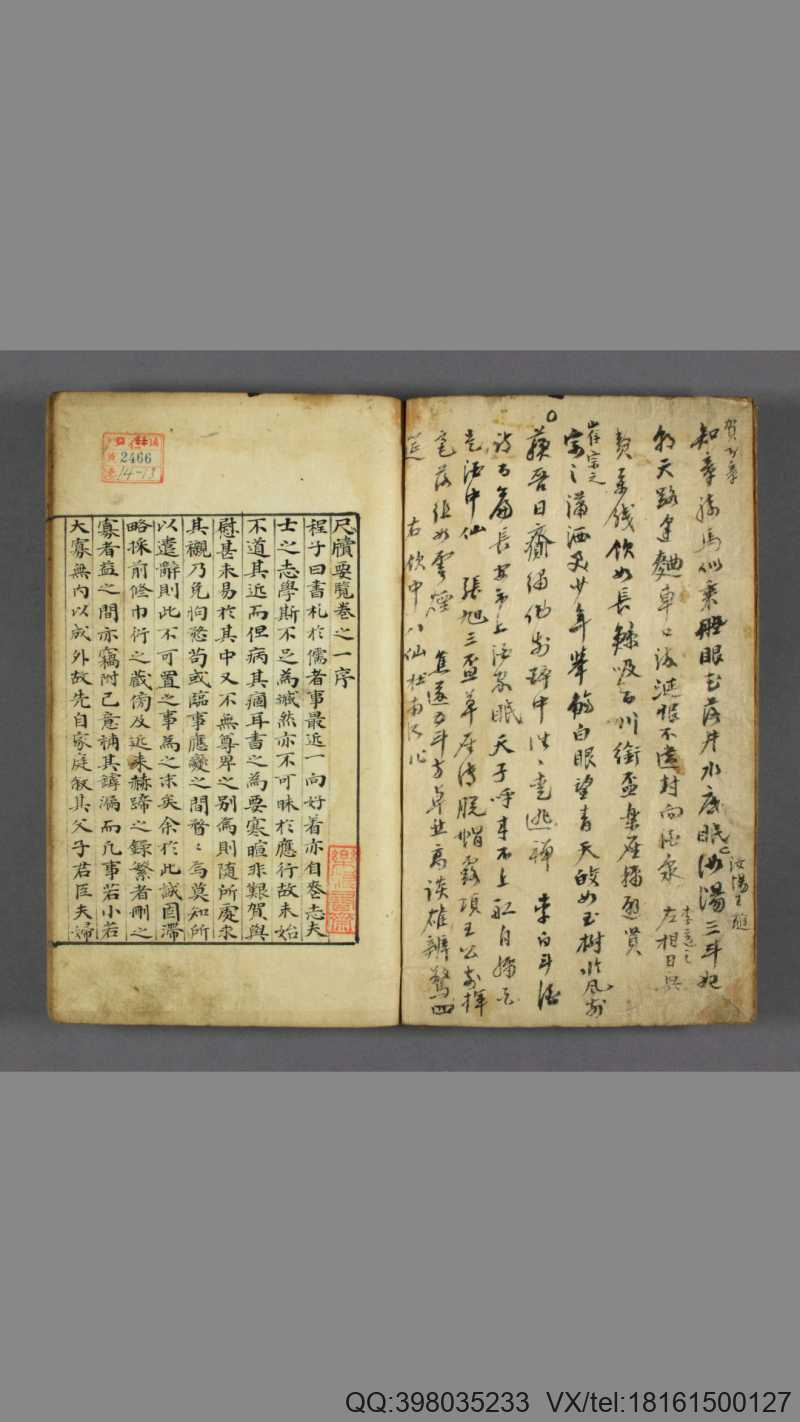 賀知章
知章騎馬似乘船眼花落井水底眠 汝陽三斗始
汝陽王璡
朝天路逢麴車口流涎恨不遣封向酒泉 左相日興
李適之
費萬錢飲如長鯨吸百川銜盃樂聖稱避賢
崔宗之
宗之瀟洒美少年擧觴白眼望青天皎如玉樹臨風前
蘇晉日齋繡佛前醉中往々愛逃禪 李白斗酒
詩百篇長安市上酒家眠天子呼來不上舡自稱臣
是酒中仙 張旭三盃草聖傳脫帽露頂王公前揮
毫落紙如雲煙 焦遂五斗方卓然高談雄辨驚四
筵 右飲中八仙杜甫
尺牘要覽卷之一序
程子曰書札於儒者事最近一向好着亦自喪志夫
士之志學斯不足為誠然亦不可昧於應行故未始
不道其近而但病其痼耳書之為要寒暄非艱賀與
慰甚未易於其中又不無尊卑之别焉則随所處求
其襯乃免恂愗苟或臨事應變之間瞀〻焉莫知所
以遣辭則此不可置之事為之末矣余於此誠固滯
略採前修巾衍之蔵傍及近来赫蹄之録繁者刪之
寡者益之間亦竊附己意補其罅漏而凡事若小若
大寡無内以成外故先自家庭叙其父子君臣夫婦
2466
14-13
QQ:398035233 VX/tel:18161500127